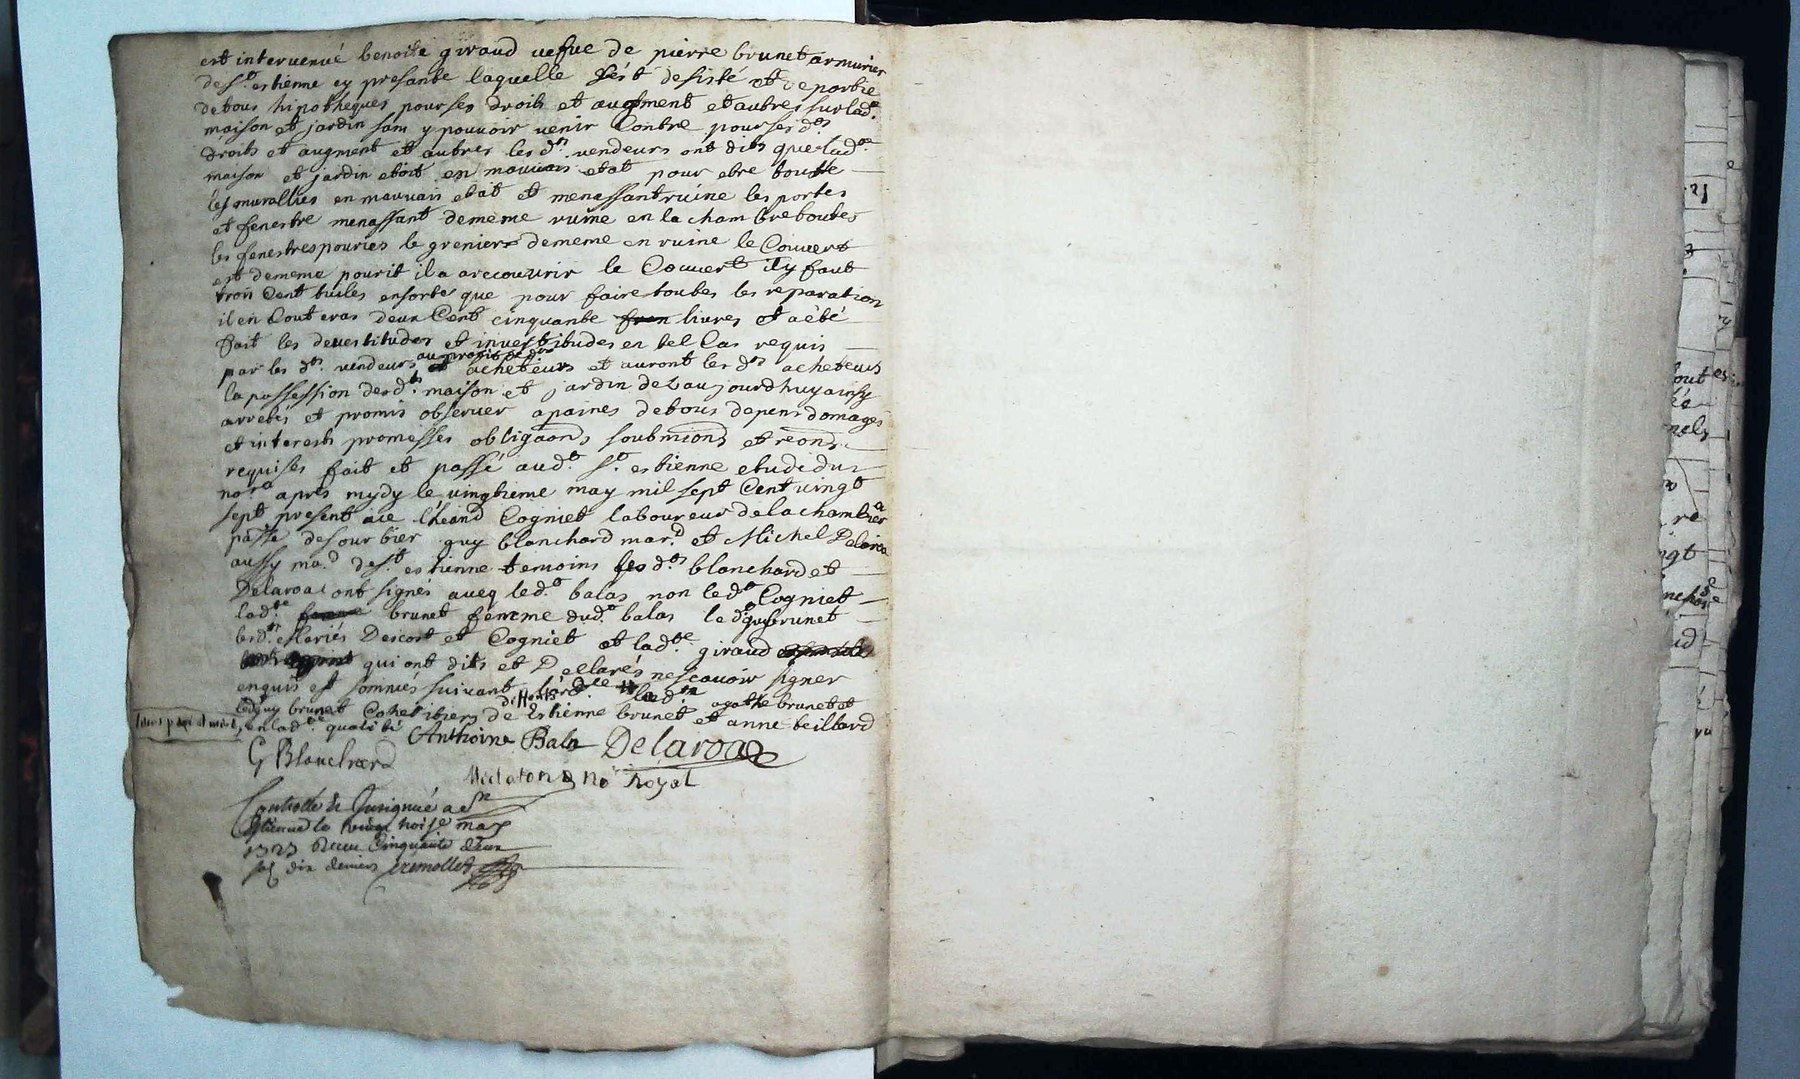 est intervenué benoite giraud vefve de pierre brunet armurier
de St. estienne cy presante laquelle s'ést desisté et deportée
de tous hipotheques pour ses droits et augment et autres sur lad.e
maison et jardin sans y pouvoir venir Contre pour ses d.ts
droits et augment et autres les d.ts vendeurs ont dits que lad.te
maison et jardin etoit en mauvais etat pour etre toutte
les murallies en mauvais etat et menassant ruine les portes
et fenestre menassant de meme ruine en la chambre toutes
les fenestres pouries le grenier de meme en ruine le Couvert
est de meme pourit il a arecouvrir le Couvert il y faut
trois Cent tuiles en sorte que pour faire toutes les reparation
il en Couteras deux Cent cinquante livres et a été
fait les devestitudes et investitudes en tel Cas requis
par les d.ts vendeurs au profit de d.ts acheteurs et auront les d.ts acheteurs
la possession des d.ts maison et jardin dez aujourdhuy ainsy
arretés et promis observer apaines de tous depens domages
et interests promesses obligaons soubmions et reons
requises fait et passé aud.t St. estienne etude du
no.re apres mydy le vingtieme may mil sept Cent vingt
sept present sie Cogniet laboureur de la chambre
guy blanchard mar.d et Michel Delaroa
aussy ma.d de St. estienne temoins les d.ts blanchard et
Delaroa ont signés aveq led.t balas non led.t Cogniet
lad.te brunet femme dud.t balas led. guy brunet
les d.ts Mariés Descost et Cogniet et lad.te giraud
qui ont dits et Declarés ne scavoir signer
enquis et sommés suivant lord.ce les d.ts agathe brunet et
led. guy brunet Cohéritiers de deffunts Estienne brunet et anne teillard
en lad.te qualité
Anthoine Bala Delaroa
G Blanchard
no.re Royal
Controllé & Insignué a St
Estienne le vingt troise may
1727 Receu Cinquante deux
sols dix deniers